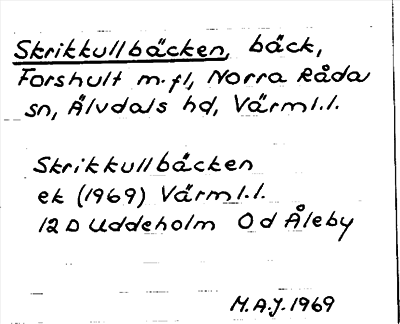 Skrikkullbäcken, bäck,
Forshult m.fl, Norra Råda
sn, Älvdals hd, Värml.l.
Skrikkullbäcken
ek (1969) Värml.l.
12 D Uddeholm Od Åleby
M.A.J. 1969